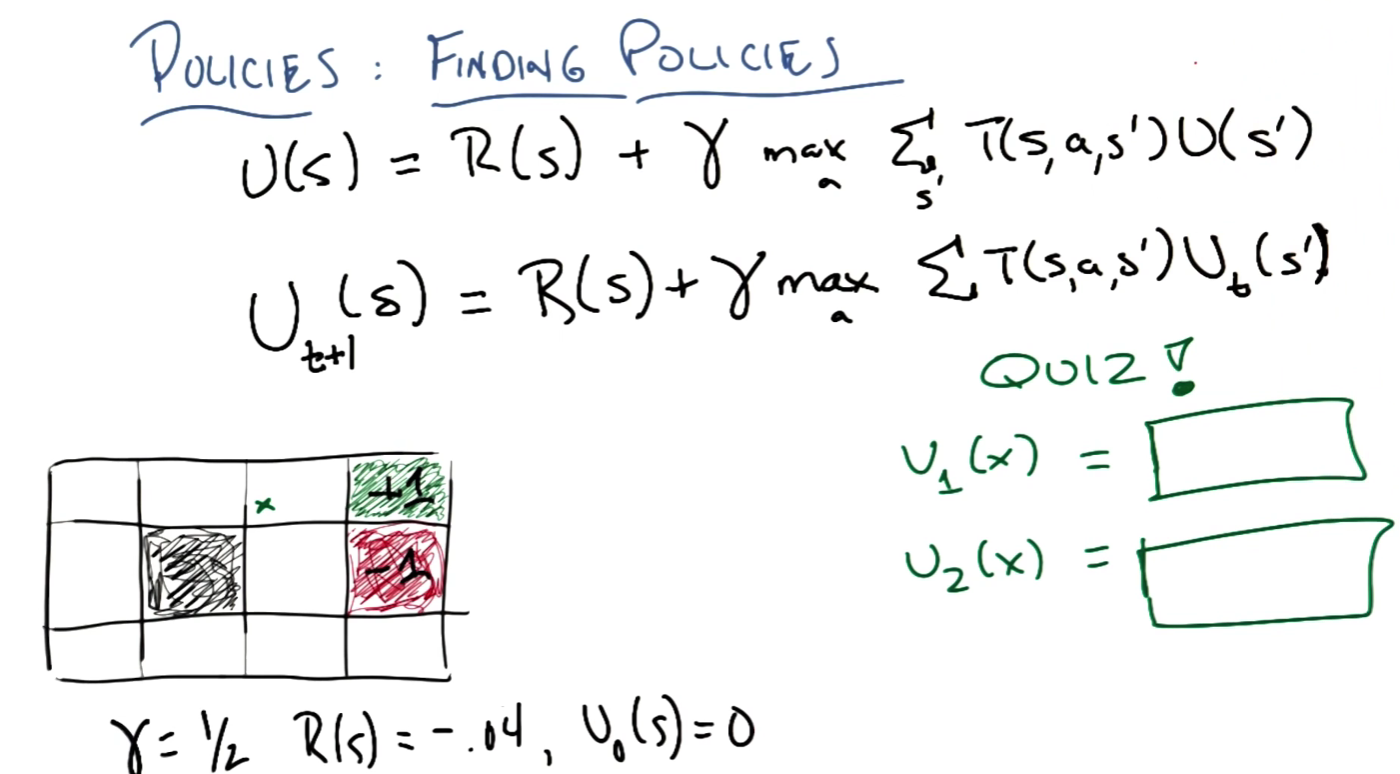 POLICIES : FINDING POLICIES
U(s) = R(s) + γ max_a Σ_s' T(s,a,s') U(s')
U_t+1(s) = R(s) + γ max_a Σ T(s,a,s') U_t(s')
QUIZ!
U_1(x) =
U_2(x) =
x +1
-1
γ = 1/2 R(s) = -.04, U_0(s) = 0